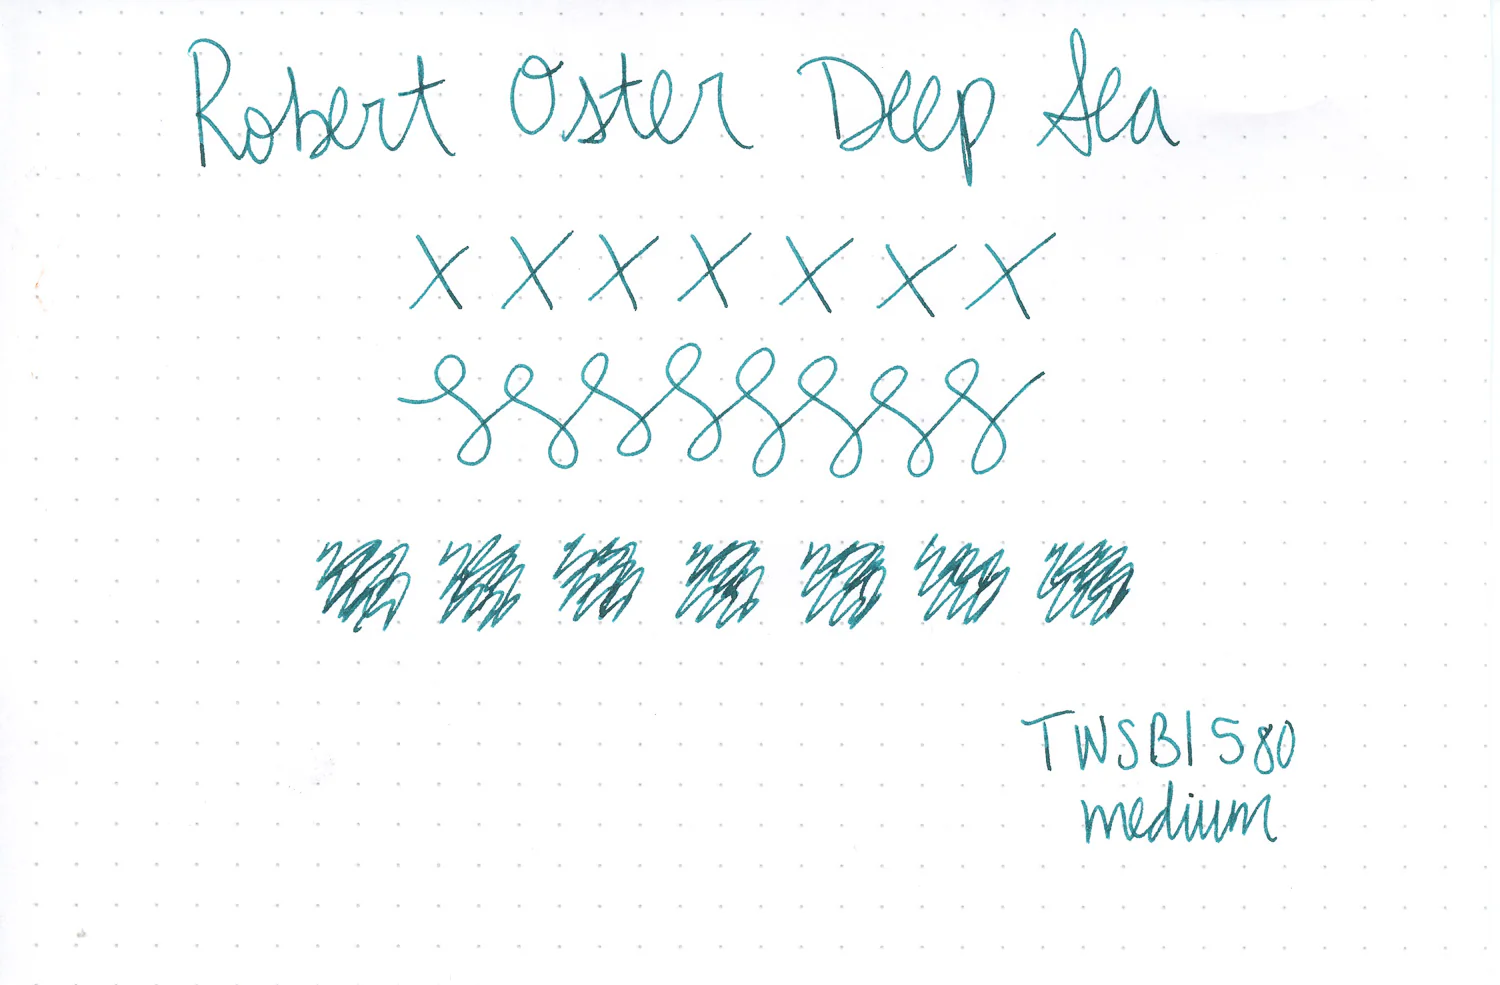 Robert Oster Deep Sea
X X X X X X X
TWSBI 580
medium